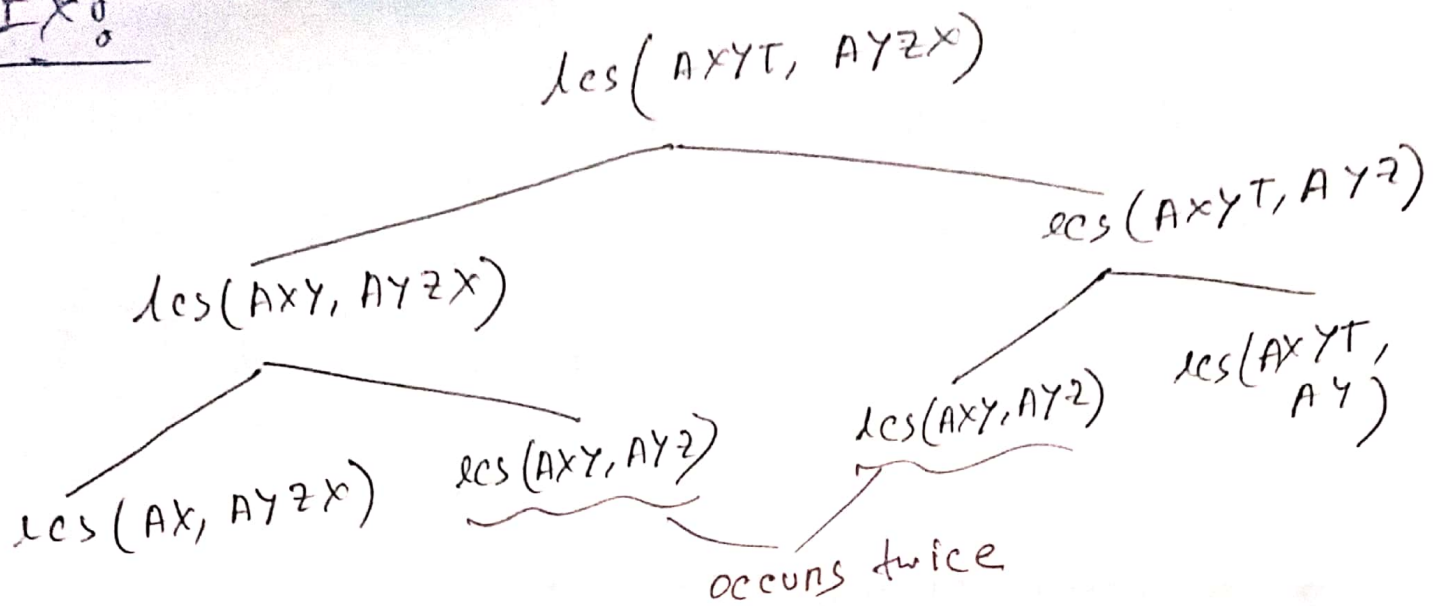 Ex:
lcs(AXYT, AYZX)
lcs(AXY, AYZX)
lcs(AXYT, AYZ)
lcs(AX, AYZX)
lcs(AXY, AYZ)
lcs(AXY, AYZ)
lcs(AXYT,
AY)
occurs twice